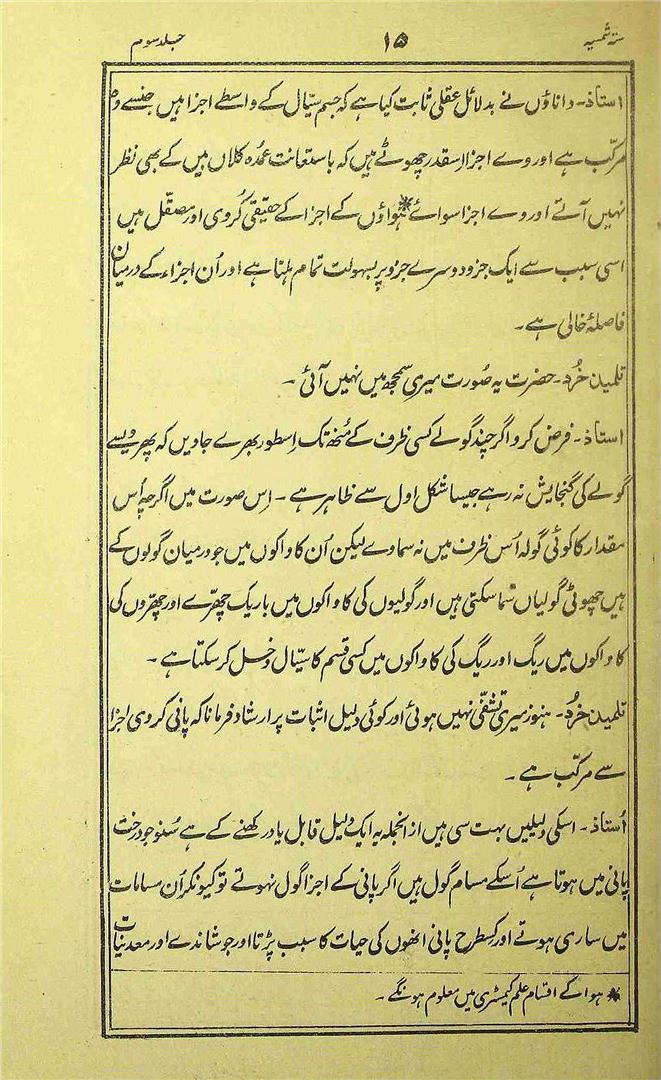 ستہ شمسیہ ۱۵ جلد سوم
استاذ۔ داناؤں نے بدلائل عقلی ثابت کیا ہے کہ جسم سیّال کے واسطے اجزا ہیں جنسے وہ
مرکّب ہے اور وے اجزا اسقدر چھوٹے ہیں کہ باستعانت عمدہ کلاں بیں کے بھی نظر
نہیں آتے اور وے اجزا سوائے * ہواؤں کے اجزا کے حقیقی کُروی اور مصقّل ہیں
اسی سبب سے ایک جزو دوسرے جزو پر بسہولت تمام ہلتا ہے اور اُن اجزاء کے درمیان
فاصلۂ خالی ہے۔
تلمیذ خُرد۔ حضرت یہ صورت میری سمجھ میں نہیں آئی ۔
استاذ۔ فرض کرو اگر چند گولے کسی ظرف کے مُنھ تک اِسطور بھرے جاویں کہ پھر ویسے
گولے کی گنجایش نہ رہے جیسا شکل اول سے ظاہر ہے ۔ اِس صورت میں اگرچہ اُس
مقدار کا کوئی گولہ اُس ظرف میں نہ سماوے لیکن اُن کاواکوں میں جو درمیان گولوں کے
ہیں چھوٹی گولیاں سما سکتی ہیں اور گولیوں کی کاواکوں میں باریک چھرّے اور چھرّوں کی
کاواکوں میں ریگ اور ریگ کی کاواکوں میں کسی قسم کا سیّال دخل کر سکتا ہے ۔
تلمیذ خُرد۔ ہنوز میری تشفّی نہیں ہوئی اور کوئی دلیل اثبات پر ارشاد فرمانا کہ پانی کروی اجزا
سے مرکّب ہے ۔
اُستاذ۔ اسکی دلیلیں بہت سی ہیں ازانجملہ یہ ایک دلیل قابل یاد رکھنے کے ہے سُنو جو درخت
پانی میں ہوتا ہے اُسکے مسام گول ہیں اگر پانی کے اجزا گول نہوتے تو کیونکر اُن مسامات
میں ساری ہوتے اور کسطرح پانی انھوں کی حیات کا سبب پڑتا اور جوشاندے اور معدنیات
* ہوا کے اقسام علم کیمسٹری میں معلوم ہونگے ۔